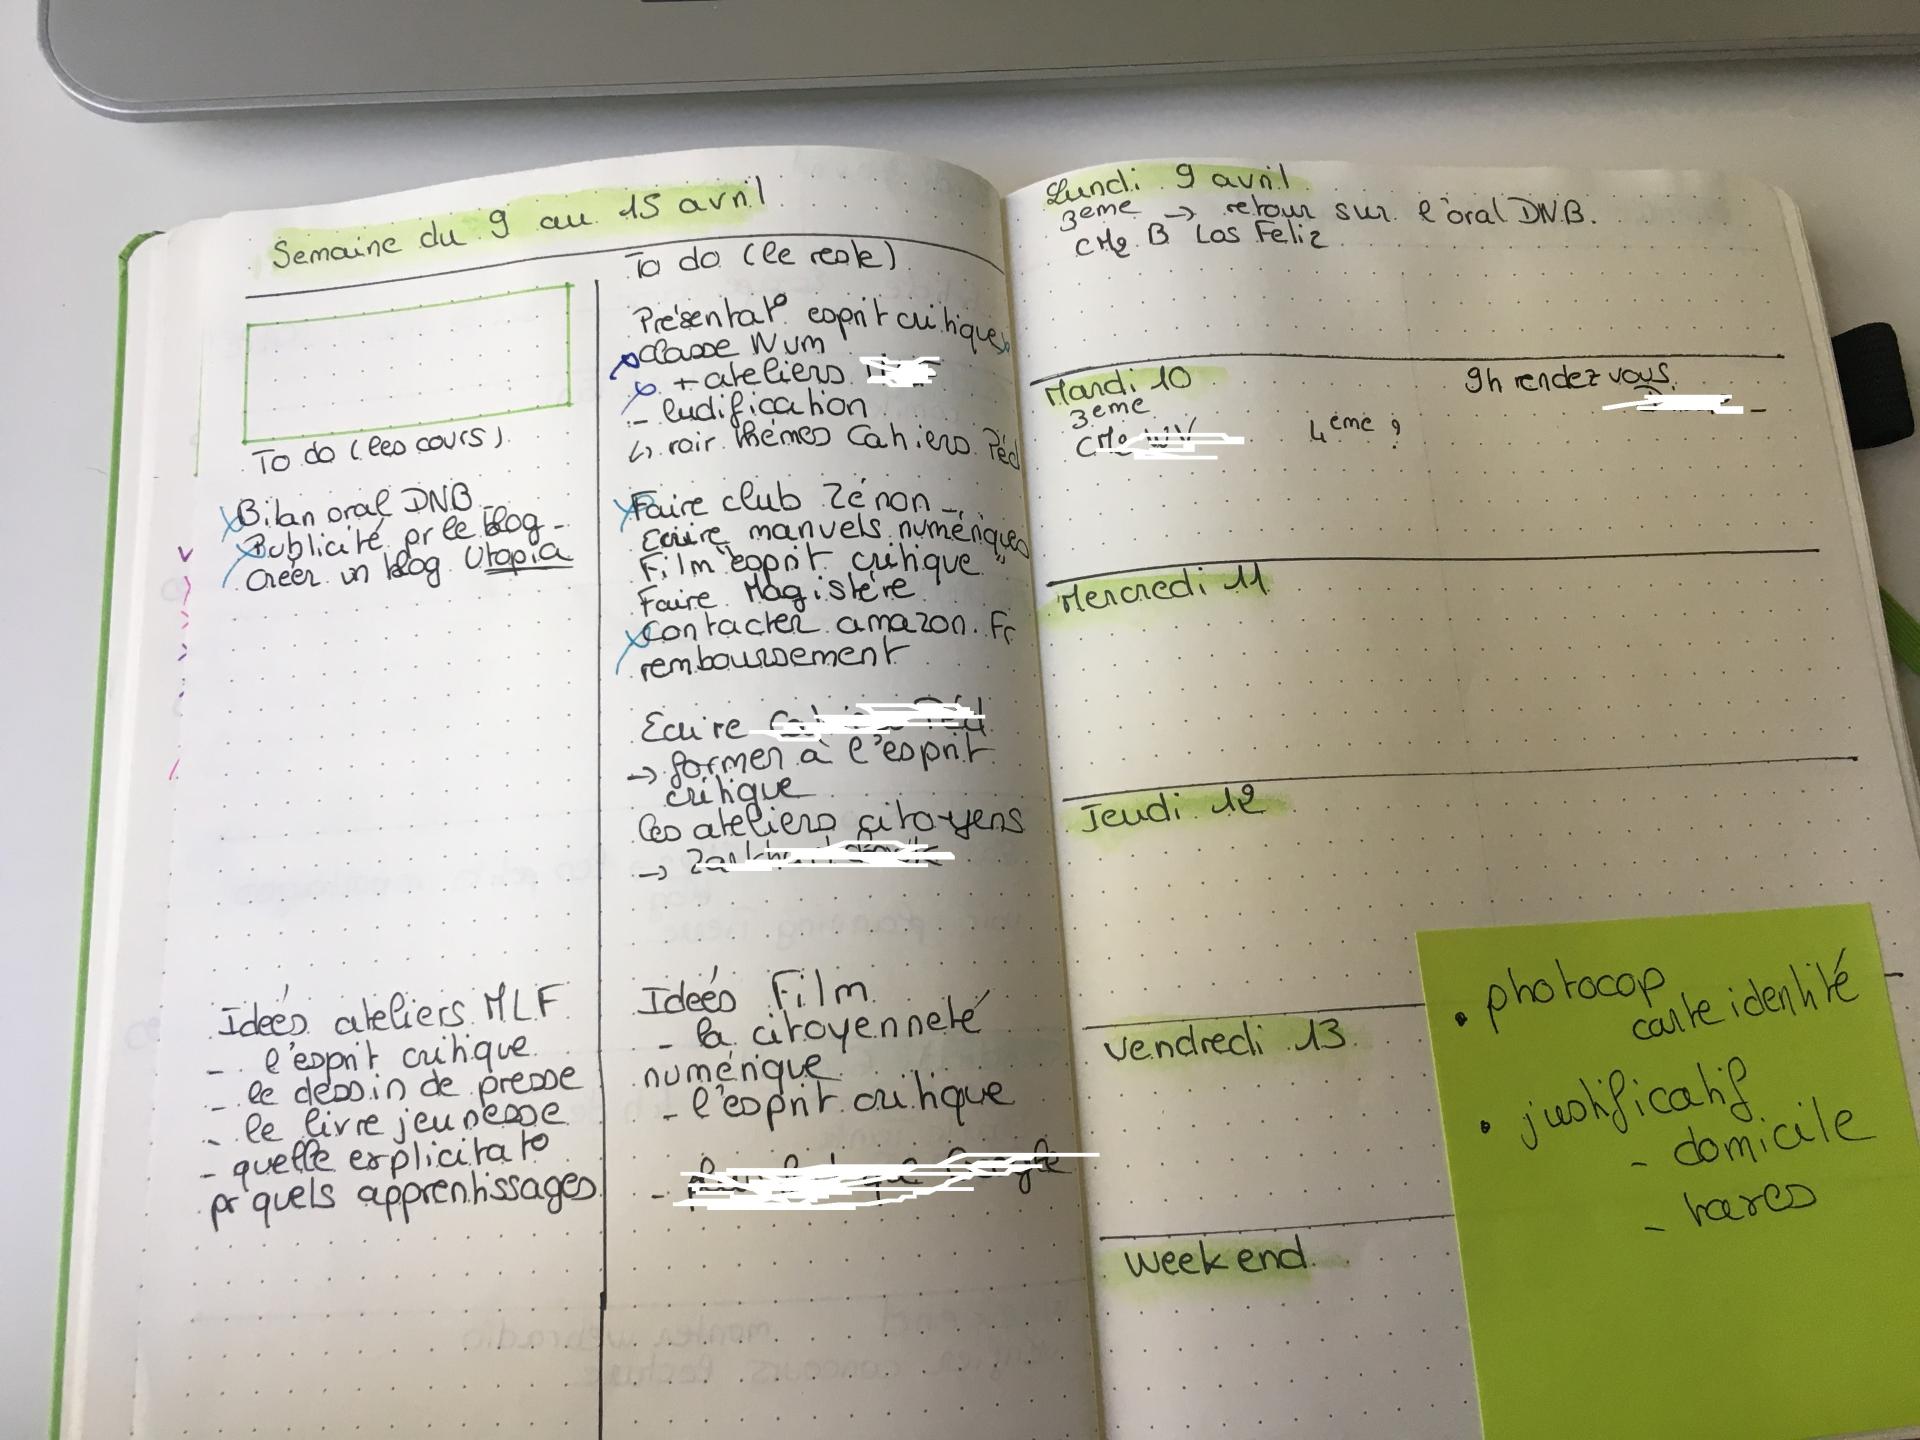 Semaine du 9 au 15 avril
To do (les cours)
Bilan oral DNB
Publicité pr le blog
Créer un blog Utopia
Idées ateliers MLF
- l'esprit critique
- le dessin de presse
- le livre jeunesse
- quelle explicitat°
pr quels apprentissages
To do (le reste)
Présentat° esprit critique
classe Num
+ ateliers
- ludification
↳ voir thèmes Cahiers Péd
Faire club Zénon
Ecrire manuels numériques
Film "esprit critique"
Faire Magistère
Contacter amazon.Fr
remboursement
Ecrire
→ former à l'esprit
critique
les ateliers citoyens
→
Idées Film
- la citoyenneté
numérique
- l'esprit critique
-
Lundi 9 avril
3eme → retour sur l'oral DNB.
CM2 B Los Feliz
Mardi 10
9h rendez vous
3eme
CM2
4eme ?
Mercredi 11
Jeudi 12
Vendredi 13
Week end
• photocop
carte identité
• justificatif
- domicile